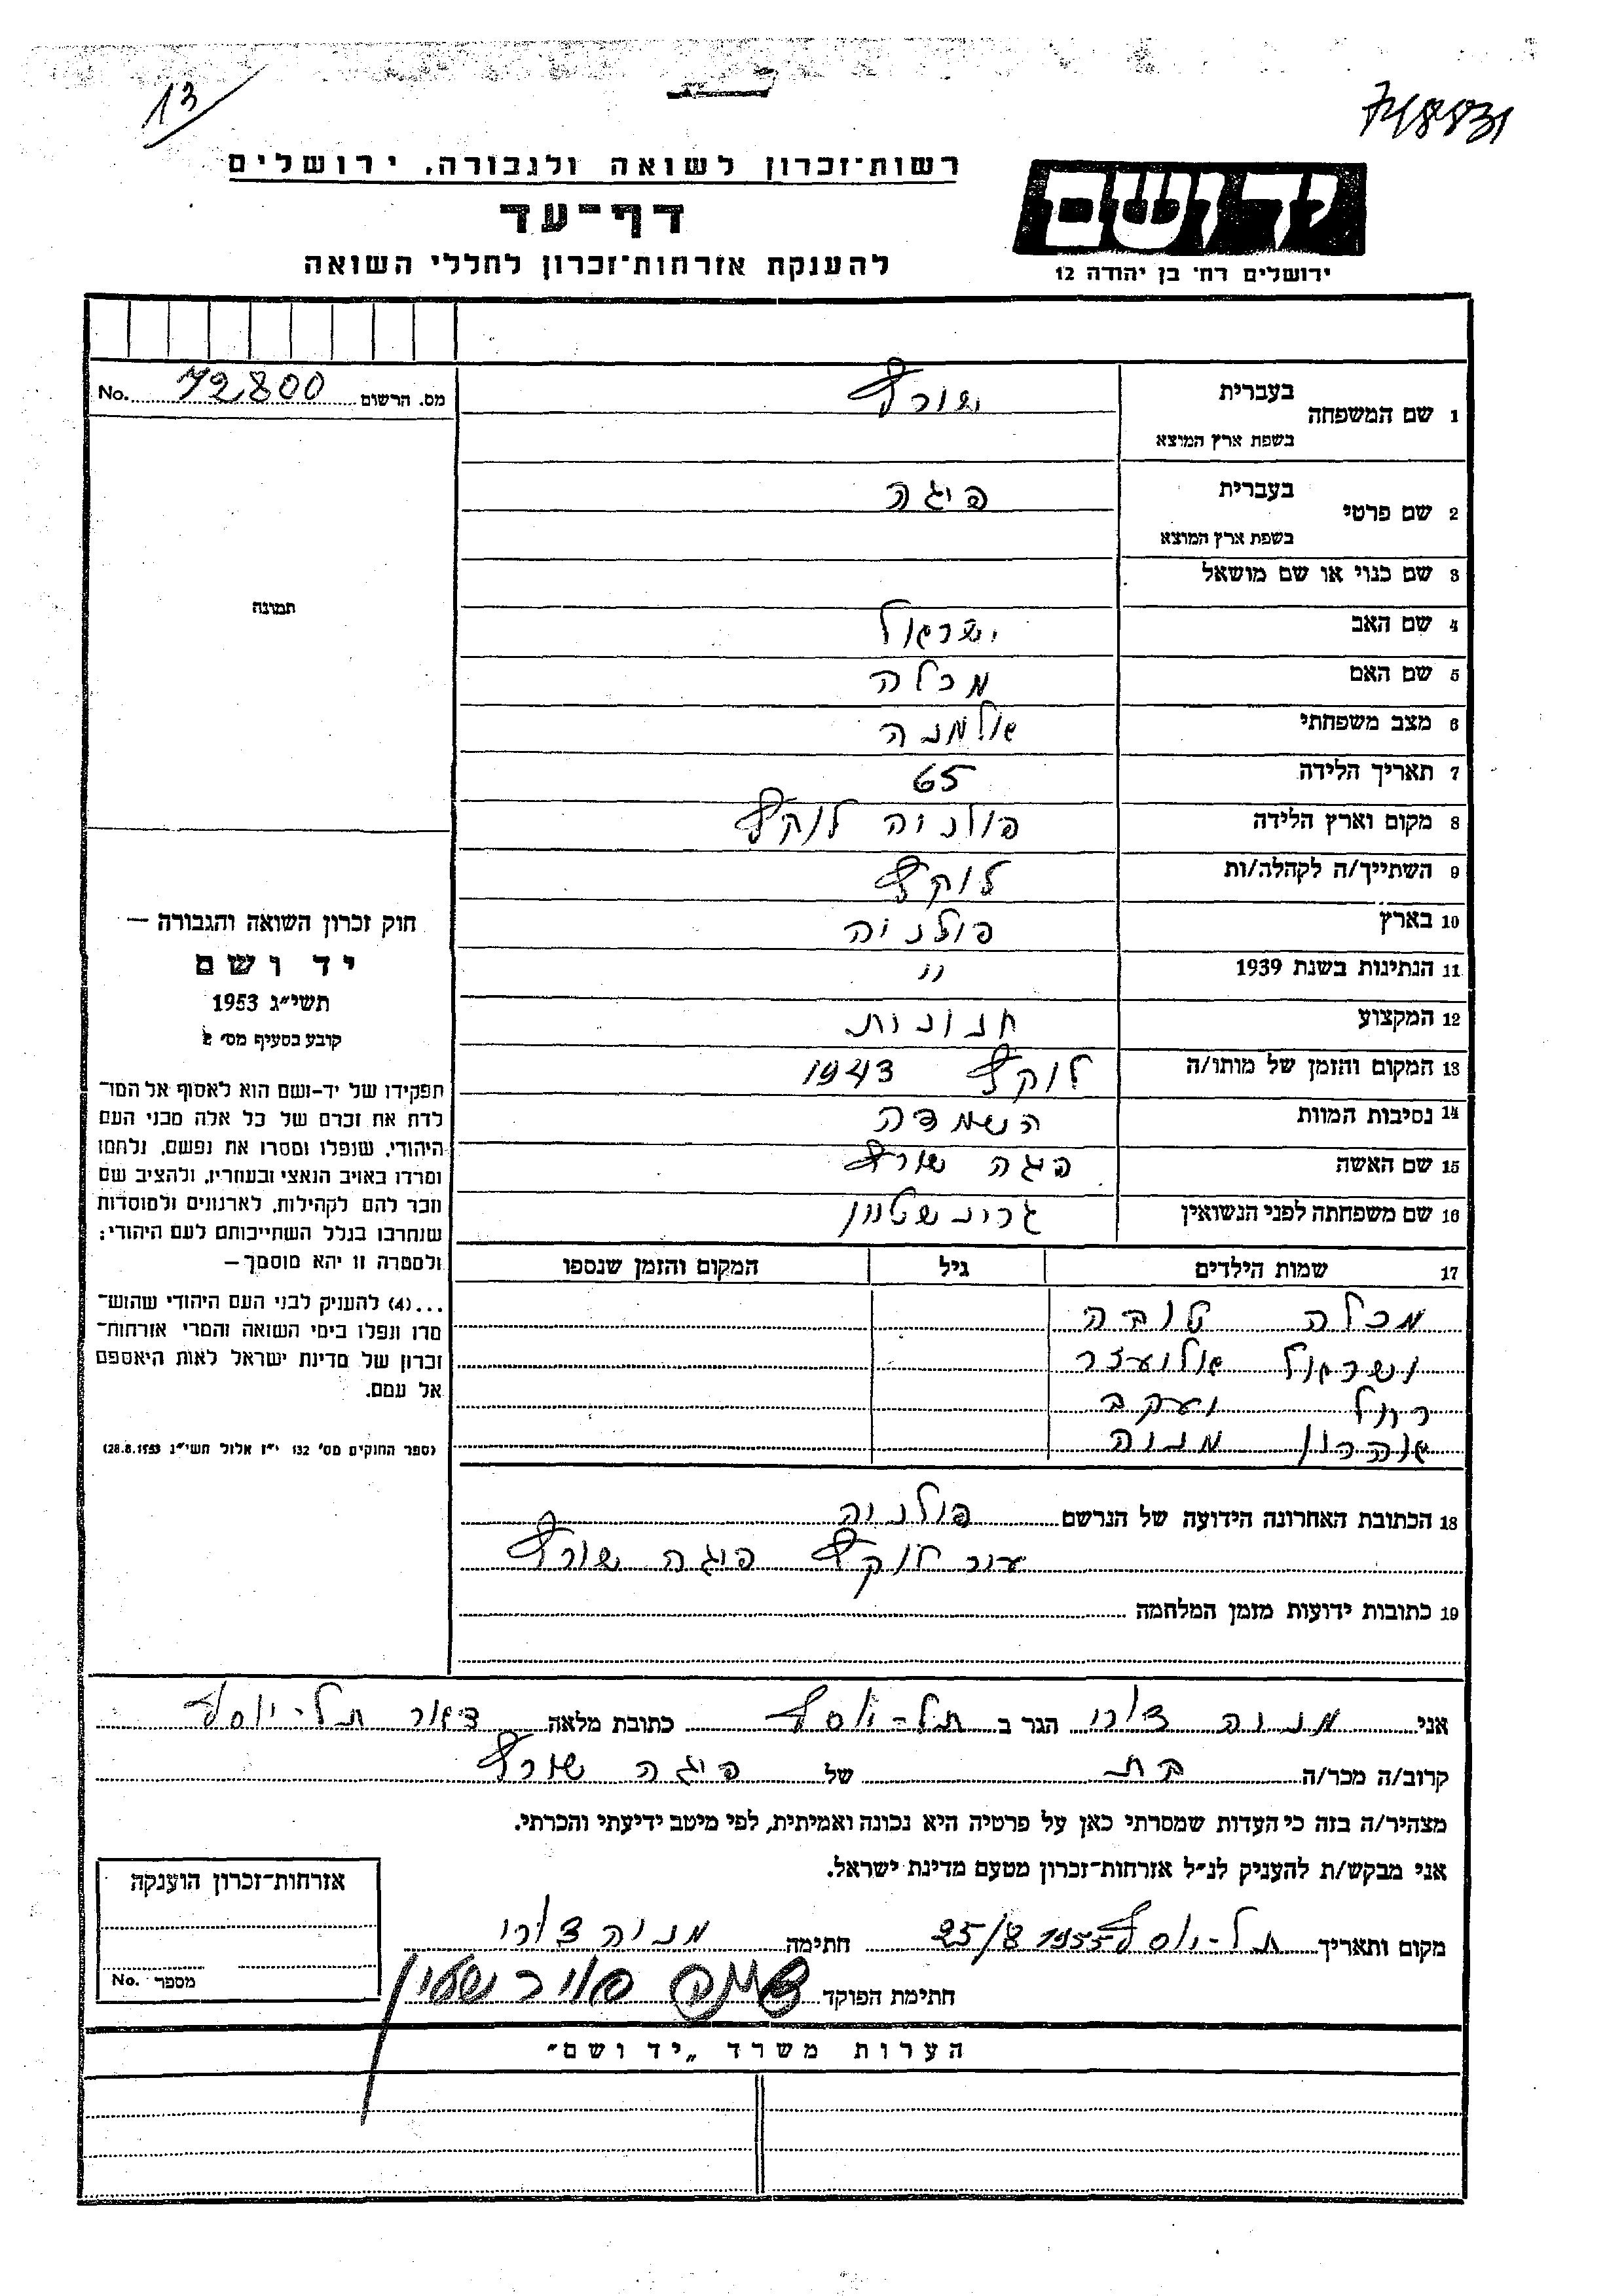 13
748831
רשות־זכרון לשואה ולגבורה, ירושלים
דף־עד
להענקת אזרחות־זכרון לחללי השואה
יד ושם
ירושלים רח' בן יהודה 12
מס. הרשום 72800 No.
1 שם המשפחה בעברית שורץ
בשפת ארץ המוצא
2 שם פרטי בעברית פיגה
בשפת ארץ המוצא
3 שם כנוי או שם מושאל
4 שם האב ישראל
5 שם האם מכלה
6 מצב משפחתי אלמנה
7 תאריך הלידה 65
8 מקום וארץ הלידה פולניה לוקץ
9 השתייך/ה לקהלה/ות לוקץ
10 בארץ פולניה
11 הנתינות בשנת 1939 "
12 המקצוע חנונות
13 המקום והזמן של מותו/ה לוקץ 1943
14 נסיבות המוות השמדה
15 שם האשה פגה שורץ
16 שם משפחתה לפני הנשואין גרינשטיין
17 שמות הילדים גיל המקום והזמן שנספו
מכלה טובה
ישראל אליעזר
רחל יעקב
אהרון מניה
18 הכתובת האחרונה הידועה של הנרשם פולניה
עיר לוקץ פיגה שורץ
19 כתובות ידועות מזמן המלחמה
תמונה
חוק זכרון השואה והגבורה —
יד ושם
תשי״ג 1953
קובע בסעיף מס' 2
תפקידו של יד-ושם הוא לאסוף אל המו־
לדת את זכרם של כל אלה מבני העם
היהודי, שנפלו ומסרו את נפשם, נלחמו
ומרדו באויב הנאצי ובעוזריו, ולהציב שם
וזכר להם לקהילות, לארגונים ולמוסדות
שנחרבו בגלל השתייכותם לעם היהודי;
ולמטרה זו יהא מוסמך —
...(4) להעניק לבני העם היהודי שהוש־
מדו ונפלו בימי השואה והמרי אזרחות־
זכרון של מדינת ישראל לאות היאספם
אל עמם.
(ספר החוקים מס' 132 י״ז אלול תשי״ג 28.8.1953)
אני מניה דורי הגר ב תל-יוסף כתובת מלאה דאר תל-יוסף
קרוב/ה מכר/ה בת של פיגה שורץ
מצהיר/ה בזה כי העדות שמסרתי כאן על פרטיה היא נכונה ואמיתית, לפי מיטב ידיעתי והכרתי.
אני מבקש/ת להעניק לנ״ל אזרחות־זכרון מטעם מדינת ישראל.
מקום ותאריך תל-יוסף 25/8 1955 חתימה מניה דורי
חתימת הפוקד
אזרחות־זכרון הוענקה
מספר No.
הערות משרד „יד ושם"